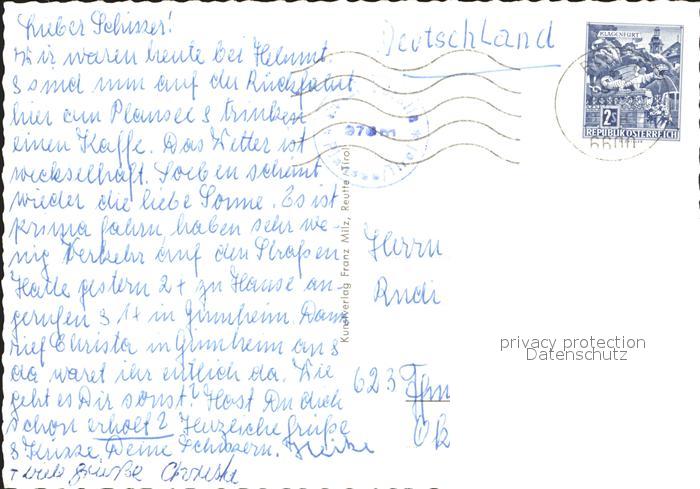 Lieber Schisser!
Wir waren heute bei Helmut
& sind nun auf der Rückfahrt
hier am Plansee & trinken
einen Kaffe. Das Wetter ist
wechselhaft. Soeben scheint
wieder die liebe Sonne. Es ist
prima fahrn, haben sehr we-
nig Verkehr auf den Straßen
Hatte gestern 2+ zu Hause an-
gerufen & 1+ in Ginnheim. Dann
rief Christa in Ginnheim an &
da waret ihr entlich da. Wie
geht es Dir sonst? Hast Du dich
schon erholt? Herzliche Grüße
& Küsse, Deine Schissern.
+ viele Grüße
Deutschland
KLAGENFURT
2S
REPUBLIK ÖSTERREICH
6600
976 m
Kunstverlag Franz Milz, Reutte/Tirol
Herrn
Rudi
privacy protection
Datenschutz
623 Ffm